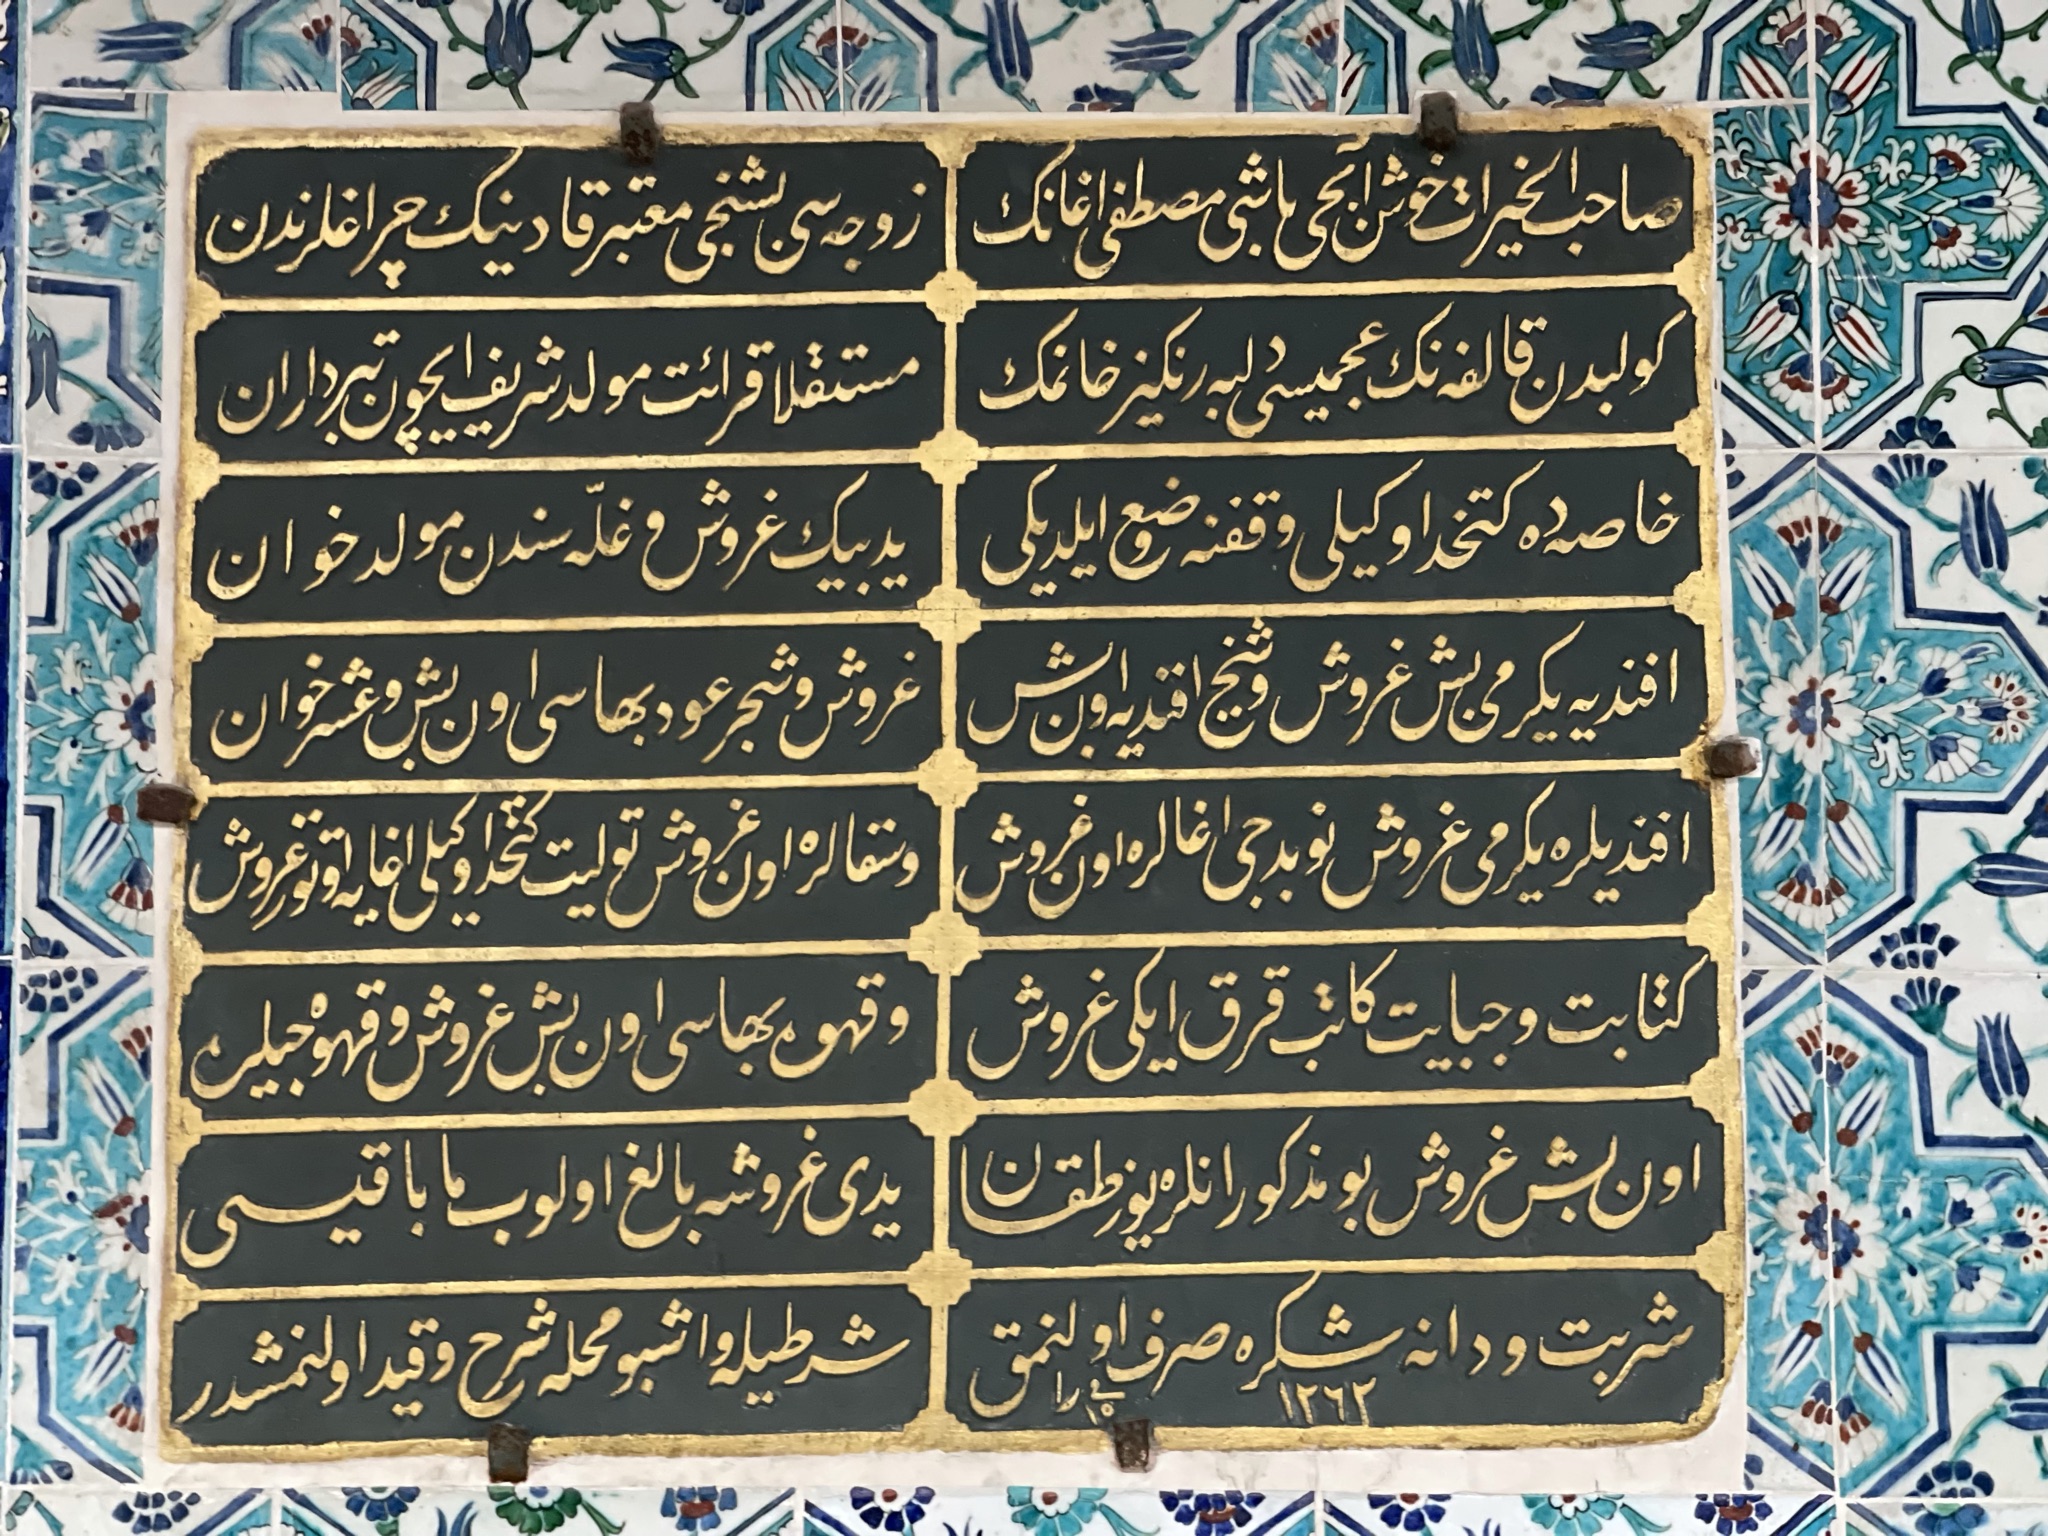 صاحب الخيرات خوش آبجى باشى مصطفى اغانك
زوجه سى بشنجى معتبر قادينك چراغلرندن
كولبدن قالفه نك عجميسى دلبه رنكيز خانمك
مستقلا قرائت مولد شريف ايچون تبرداران
خاصه ده كتخدا وكيلى وقفنه وضع ايلديكى
يديبيك غروش وغلّه سندن مولد خوان
افنديه يكرمى بش غروش وشيخ افنديه اون بش
غروش وشجر عود بهاسى اون بش وعشر خوان
افنديلره يكرمى غروش نوبدجى اغالره اون غروش
وسقالره اون غروش توليت كتخدا وكيلى اغايه اوتوز غروش
كتابت وجبايت كاتب قرق ايكى غروش
وقهوه بهاسى اون بش غروش وقهوه جيلره
اون بش غروش بو مذكورانلره يوز طقسان
يدى غروشه بالغ اولوب ما باقيسى
شربت ودانه شكره صرف اولنمق
شرطيله واشبو محله شرح وقيد اولنمشدر
١٢٦٢ را فى ١٥